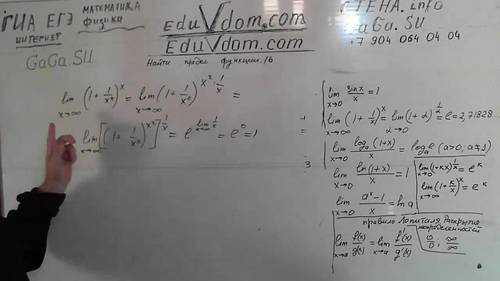 ГИА ЕГЭ МАТЕМАТИКА
физика
ИНТЕРНЕТ
GaGa.SU
EduVdom.com
EduVdom.com
Найти предел функции. 16
СТЕНА.info
GaGa.SU
+7 904 064 04 04
lim (1+1/x²)^x = lim (1+1/x²)^(x²·1/x) =
x→∞ x→∞
lim [(1+1/x²)^(x²)]^(1/x) = e^(lim 1/x) = e^0 = 1
x→∞
lim sinx/x = 1
x→0
lim (1+1/x)^x = lim (1+α)^(1/α) = e = 2,71828...
x→∞ α→0
lim log_a(1+x)/x = log_a e (a>0, a≠1)
x→0
lim ln(1+x)/x = 1
x→0
lim (1+kx)^(1/x) = e^k
x→0
lim (1+k/x)^x = e^k
x→∞
lim (a^x-1)/x = ln a
x→0
правило Лопиталя. Раскрытие
неопределенностей
lim f(x)/g(x) = lim f'(x)/g'(x)
x→a x→a
0/0; ∞/∞